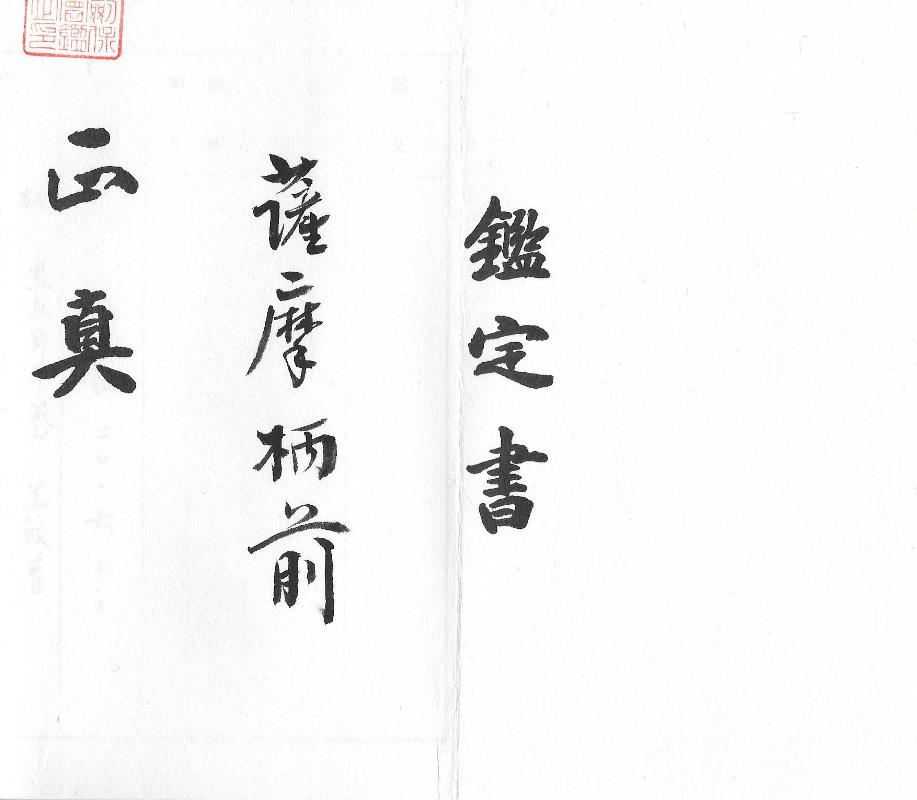 鑑定書
薩摩柄前
正真